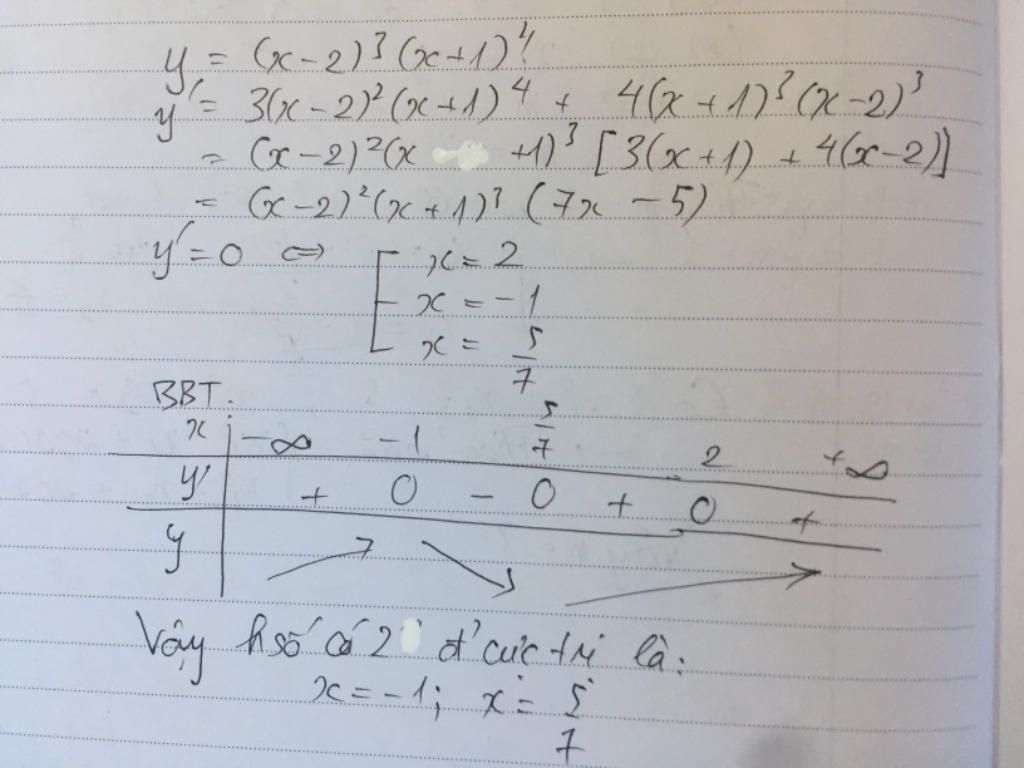 y = (x-2)³(x+1)⁴
y' = 3(x-2)²(x+1)⁴ + 4(x+1)³(x-2)³
= (x-2)²(x +1)³ [3(x+1) + 4(x-2)]
= (x-2)²(x+1)³ (7x - 5)
y' = 0 ⇔ [ x = 2
x = -1
x = 5/7
BBT.
x -∞ -1 5/7 2 +∞
y' + 0 - 0 + 0 +
y ↗ ↘ ↗
Vậy h số có 2 đ' cực trị là:
x = -1; x = 5/7